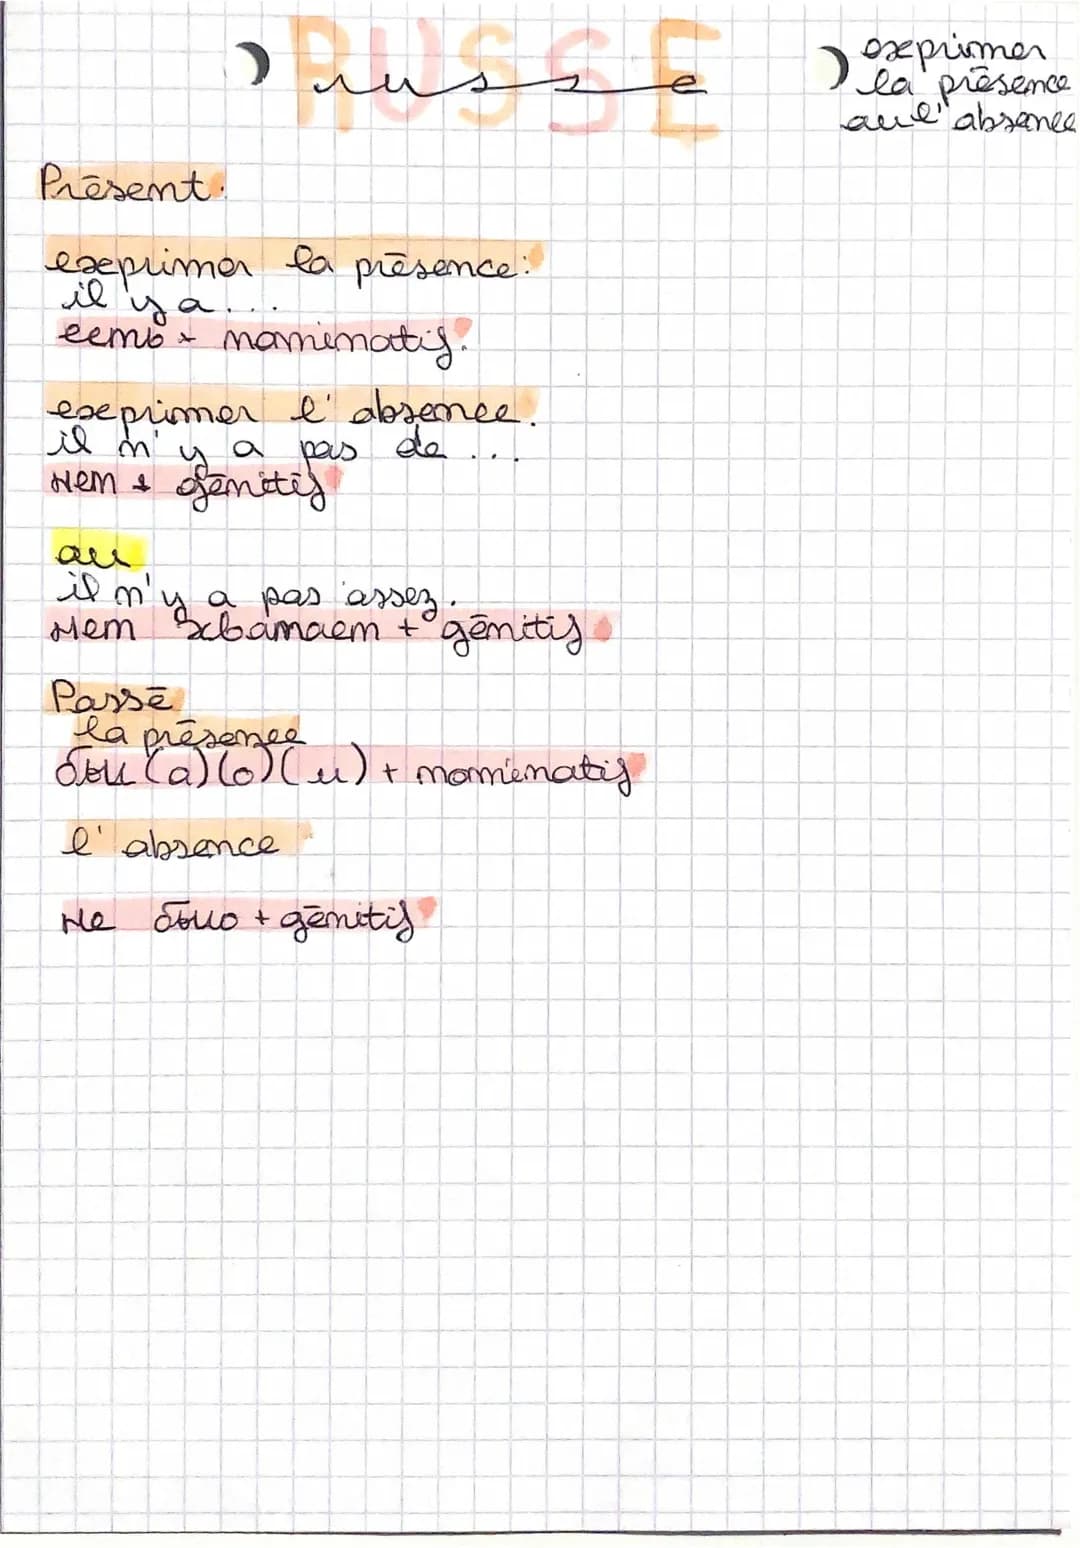 RUSSE
russe
exprimer
la présence
ou l'absence
Présent:
exprimer la présence:
il y a...
есть + nominatif.
exprimer l'absence.
il n'y a pas de ...
нет + génitif
ou
il n'y a pas assez.
нет + génitif
Passé
la présence
был(а)(о)(и) + nominatif
l'absence
не было + génitif